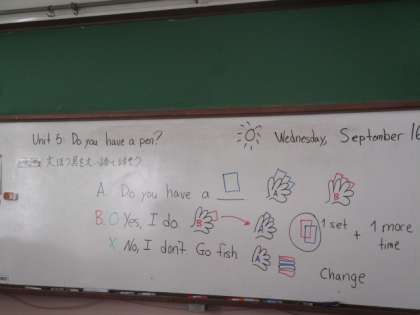 Unit 5 Do you have a pen?
Wednesday, September 16
A. Do you have a
B. O Yes, I do.
B
A
B
A
1 set + 1 more time
X No, I don't Go fish
A
Change